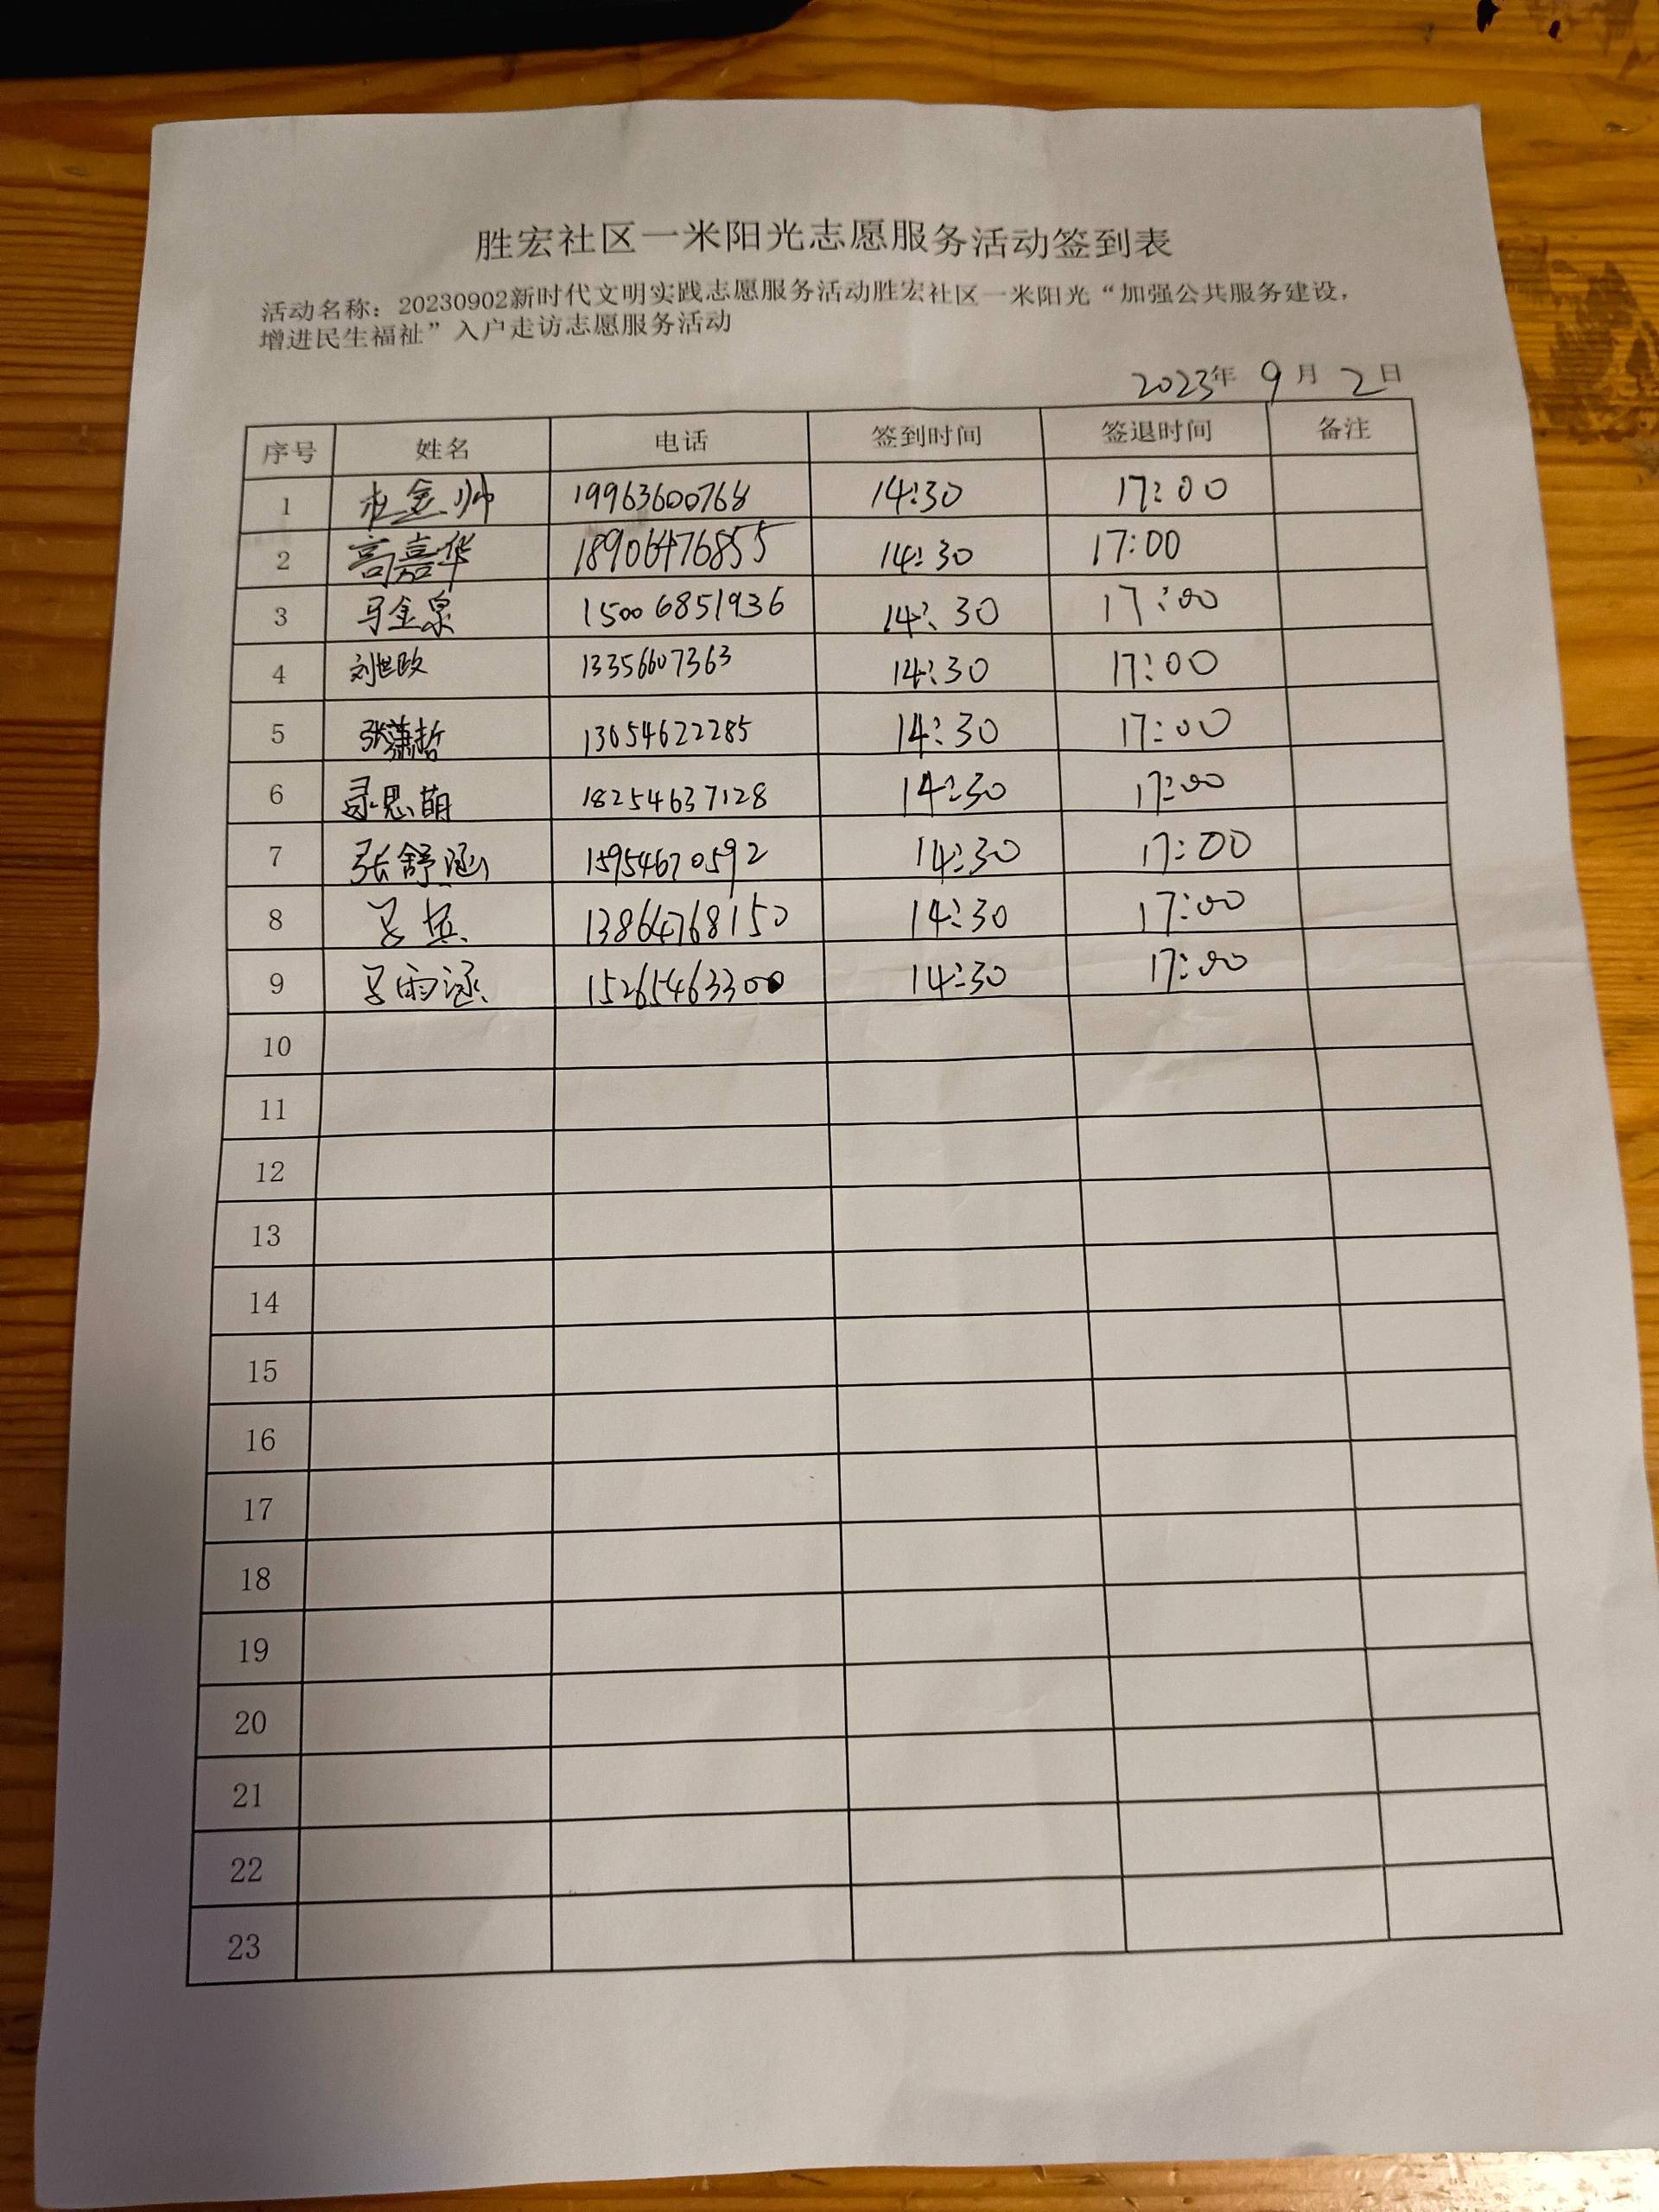 胜宏社区一米阳光志愿服务活动签到表
活动名称：20230902新时代文明实践志愿服务活动胜宏社区一米阳光“加强公共服务建设，
增进民生福祉”入户走访志愿服务活动
2023年 9月 2日
序号 姓名 电话 签到时间 签退时间 备注
1 19963600768 14:30 17:00
2 高嘉华 18906476855 14:30 17:00
3 马金泉 15006851936 14:30 17:00
4 刘世政 13356607363 14:30 17:00
5 13654622285 14:30 17:00
6 18254637128 14:30 17:00
7 张舒涵 15954670592 14:30 17:00
8 13864768150 14:30 17:00
9 15265463300 14:30 17:00
10
11
12
13
14
15
16
17
18
19
20
21
22
23